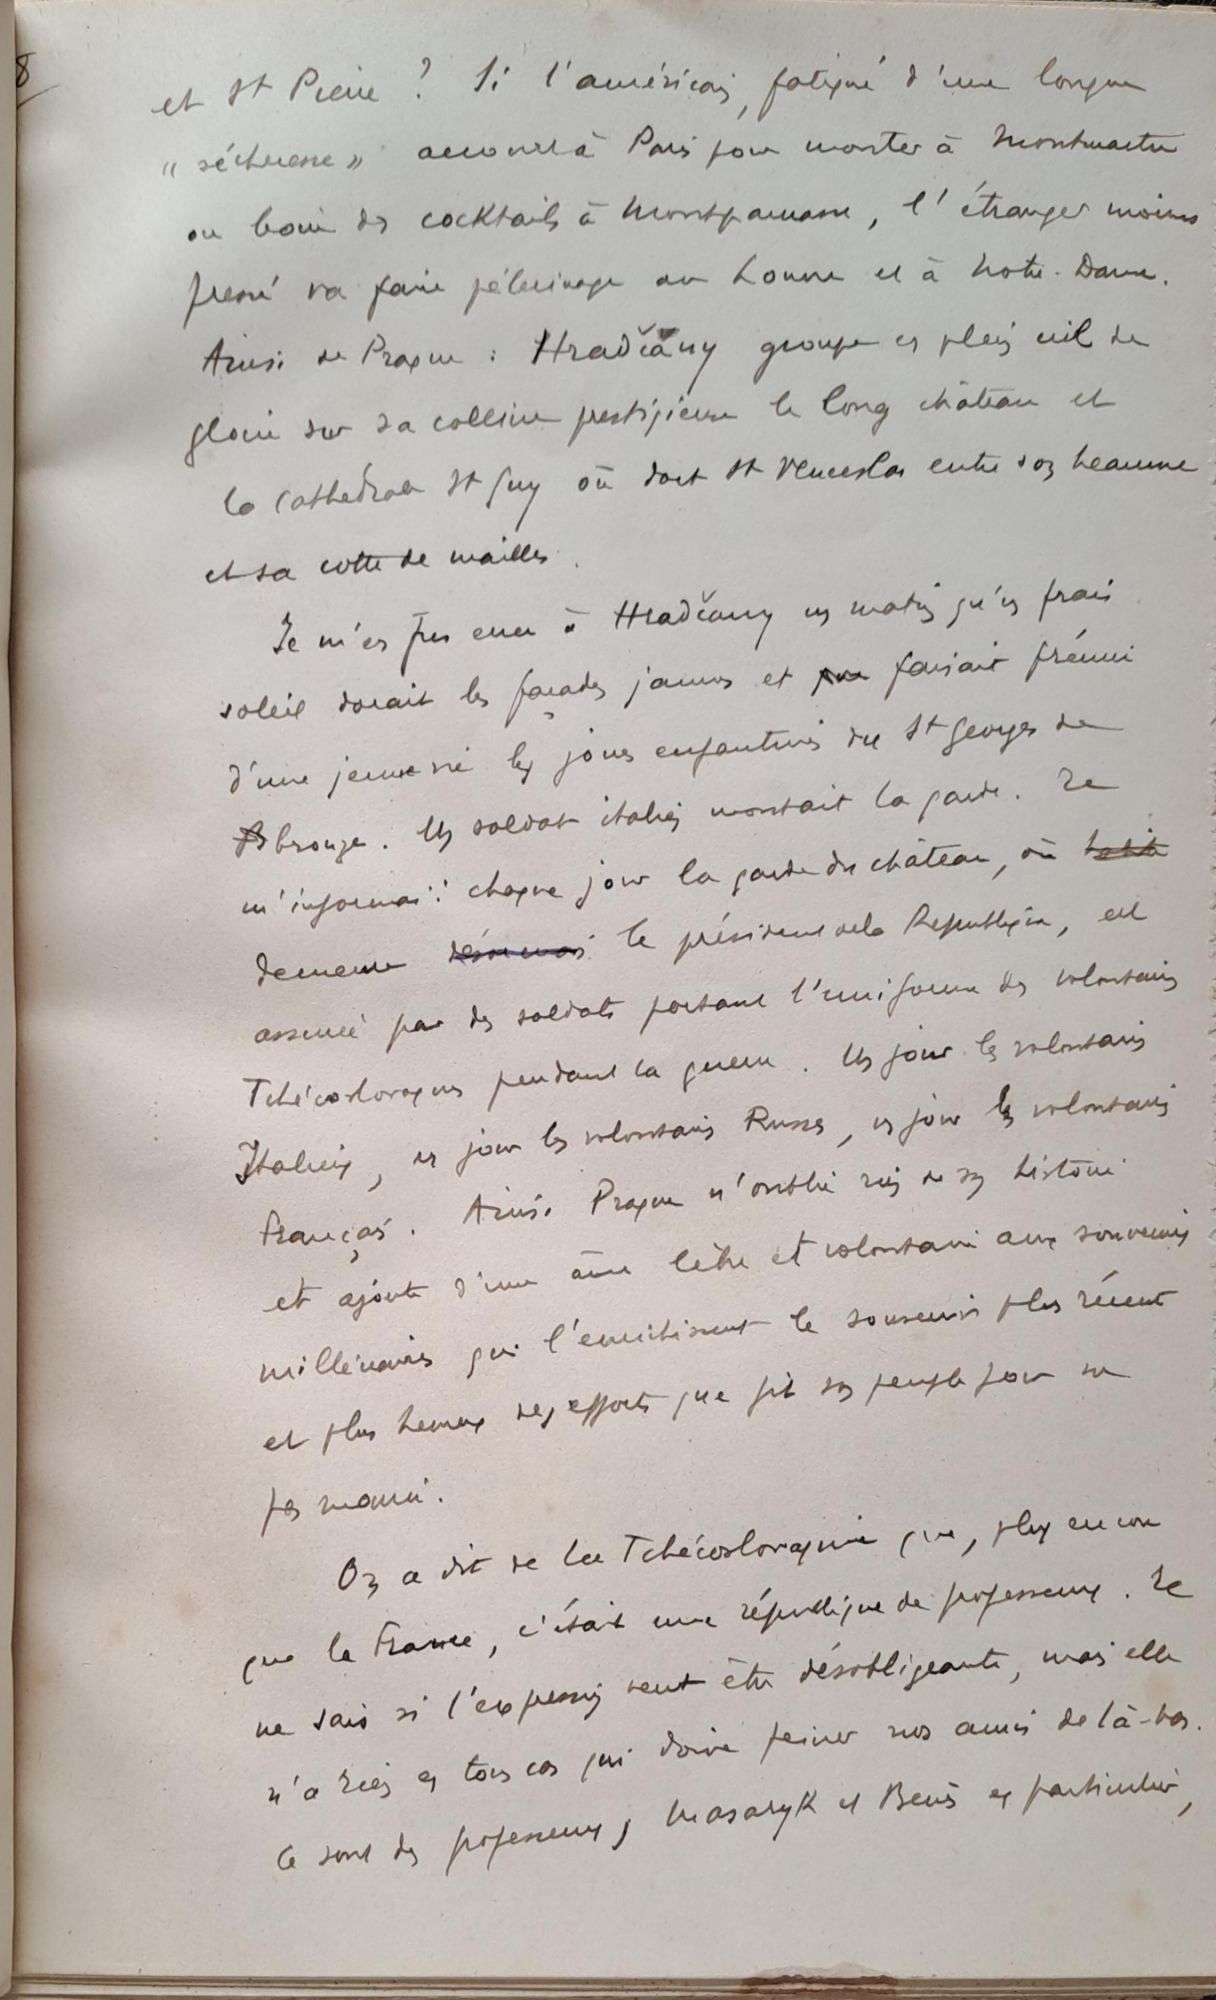 8
et St Pierre ? Si l'américain, fatigué d'une longue
« sécheresse » accourt à Paris pour monter à Montmartre
ou boire des cocktails à Montparnasse, l'étranger moins
pressé va faire pélerinage au Louvre et à Notre-Dame.
Ainsi de Prague : Hradčany groupe en plein ciel de
gloire sur sa colline prestigieuse le long château et
la Cathédrale St Guy où dort St Venceslas entre son heaume
et sa cotte de mailles.
Je m'en fus errer à Hradčany un matin qu'un frais
soleil dorait les façades jaunes et faisait frémir
d'une jeune vie les joues enfantines du St Georges de
bronze. Un soldat italien montait la garde. Je
m'informai : chaque jour la garde du château, où habite
demeure désormais le président de la République, est
assurée par des soldats portant l'uniforme des volontaires
Tchécoslovaques pendant la guerre. Un jour les volontaires
Italiens, un jour les volontaires Russes, un jour les volontaires
français. Ainsi Prague n'oublie rien de son histoire
et ajoute d'une âme libre et volontaire aux souvenirs
millénaires qui l'enrichissent le souvenir plus récent
et plus heureux des efforts que fit son peuple pour ne
pas mourir.
On a dit de la Tchécoslovaquie que, plus encore
que la France, c'était une république de professeurs. Je
ne sais si l'expression veut être désobligeante, mais elle
n'a rien en tous cas qui doive peiner nos amis de là-bas.
Ce sont des professeurs, Masaryk et Benès en particulier,